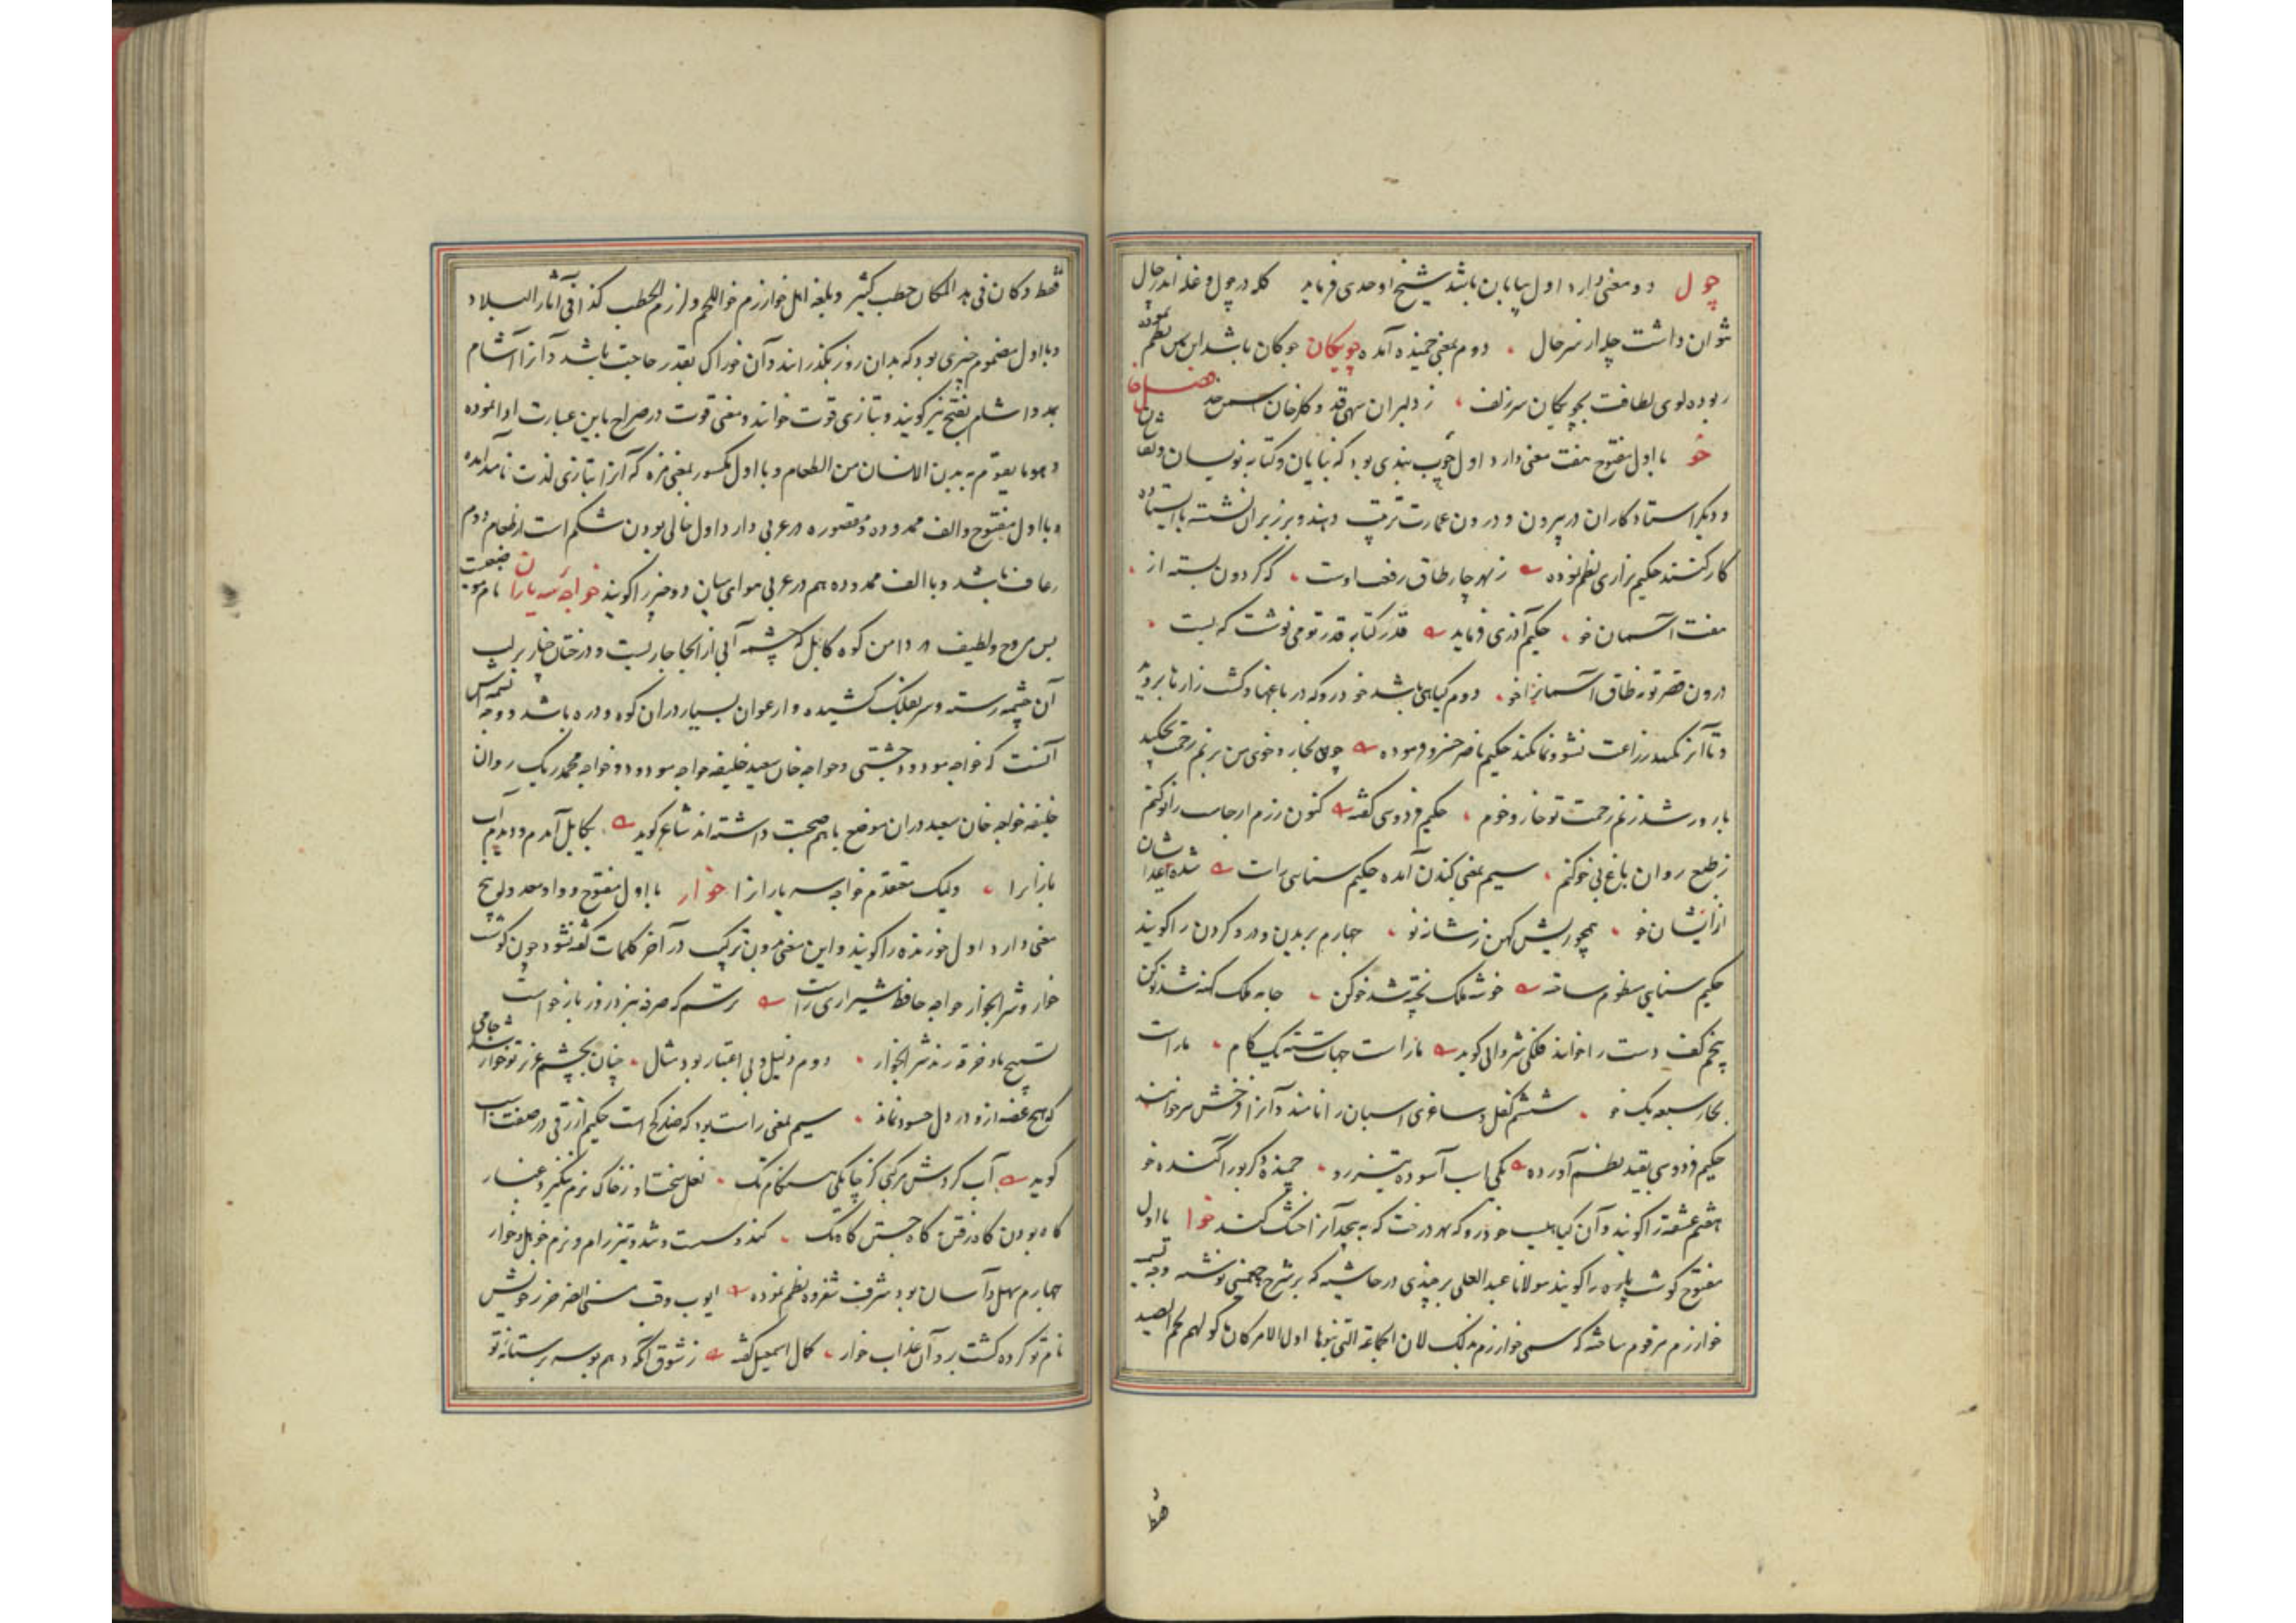 چول دو معنی دارد اول بیابان باشد شیخ اوحدی فرماید کله در چول و غله اندر چال
نتوان داشت چله از سر حال دوم بمعنی خمیده آمده چویکان چوکان باشد ابن یمین نظم نموده
ربوده کوی لطافت بچویکان سر زلف ز دلبران سهی قد و کلرخان سمن خد فصل خا
خو با اول مفتوح هفت معنی دارد اول چوب بندی بود که بنایان و کتابه نویسان و نقاشان
و دیکر استاد کاران در بیرون و درون عمارت ترتیب دهند و بر زبر آن نشسته یا ایستاده
کار کنند حکیم نزاری نظم نموده ز بهر چار طاق رفعت اوست که کردون بسته از
هفت آسمان خو حکیم آذری فرماید قدر کتابه قدر تو می نوشت که بست
درون قصر تو نه طاق آسمانرا خو دوم کیاهی باشد خودرو که در باغها و کشت زارها بروید
و تا آنرا نکنند زراعت نشو و نما نکند حکیم ناصر خسرو فرموده چون بخار و خوی من بر نم رحمت بچکید
بارور شد ز نم رحمت تو خار و خوم حکیم فردوسی کفته کنون رزم ارجاسب را نو کنم
ز طبع روان باغ بی خو کنم سیم بمعنی کندن آمده حکیم سنایی راست شده اعدا شان
از ایشان خو همچو ریش کهن ز شانه نو چهارم بریدن و درو کردن را کویند
حکیم سنایی منظوم ساخته خوشه ملک پخته شد خو کن جامه ملک کهنه شد نو کن
پنجم کف دست را خوانند فلکی شروانی کوید ماراست جهات سته یک کام ماراست
بحار سبعه یک خو ششم کفل و ساغری اسپان را نامند و آنرا فرخش هم خوانند
حکیم فردوسی بقید نظم آورده یکی اسب آسوده تیز رو خمیده کر بود آکنده خو
هفتم عشقه را کویند و آن کیاهیست خودرو که بهر درخت که بپیچد آنرا خشک کند خوا با اول
مفتوح کوشت پاره را کویند مولانا عبد العلی برجندی در حاشیه که بر شرح چغمینی نوشته وجه تسمیه
خوارزم مرقوم ساخته که سمی خوارزم بذلک لان الجماعة التی بنوها اول الامر کان ماکولهم لحم الصید
فقط
فقط و کان فی هذا المکان حطب کثیر و بلغه اهل خوارزم خوا اللحم و رزم الحطب کذا فی آثار البلاد
و با اول مضموم چیزی بود که بدان روز بکذرانند و آن خوراک بقدر حاجت باشد و آنرا آشام
بمد و اشام بفتح نیز کویند و بتازی قوت خوانند و معنی قوت در صراح باین عبارت ادا نموده
و هو ما یقوم به بدن الانسان من الطعام و با اول مکسور بمعنی مزه که آنرا بتازی لذت نامند آمده
و با اول مفتوح و الف ممدوده و مقصوره در عربی دارد اول خالی بودن شکم است از طعام دوم
رعاف باشد و با الف ممدوده هم در عربی هوای میان دو چیز را کویند خواجه سه یاران نام موضعیست
بس مروح و لطیف در دامن کوه کابل که چشمه آبی از انجا جاریست و درختان چنار بر لب
آن چشمه رسته و سر بفلک کشیده و ارغوان بسیار در آن کوه و دره باشد و وجه تسمیه اش
آنست که خواجه مودود چشتی و خواجه خان سعید خلیفه خواجه مودود و خواجه محمد ریک روان
خلیفه خواجه خان سعید در آن موضع باهم صحبت داشته اند شاعر کوید بکابل آمدم و دیدم آب
بارانرا ولیک معتقدم خواجه سه یارانرا خوار با اول مفتوح و واو معدوله پنج
معنی دارد اول خورنده را کویند و این معنی بدون ترکیب در آخر کلمات کفته نشود چون کوشت
خوار و شرابخوار خواجه حافظ شیرازی راست ترسم که صرفه نبرد روز باز خواست
تسبیح ما و خرقه رند شرابخوار دوم ذلیل و بی اعتبار بود مثال چنان بچشم عزیز تو خوار شد جامی
که هیچ غصه ازو در دل حسود نماند سیم بمعنی راست بود که ضد کج است حکیم ازرقی در صفت اسب
کوید آب کردش مرکبی کز چابکی هنکام تک نعل سختش از زخاک نرم ننکیزد غبار
کاه بودن کاه رفتن کاه جستن کاه تک کند و سست و تند و تیز رام و نرم خوهل و خوار
چهارم سهل و آسان بود شرف شفروه نظم نموده ایوب وقت مسنی الضر ز خویش
نام تو کرده کشت برو آن عذاب خوار کمال اسمعیل کفته ز شوق آنکه دهم بوسه بر ستانه تو